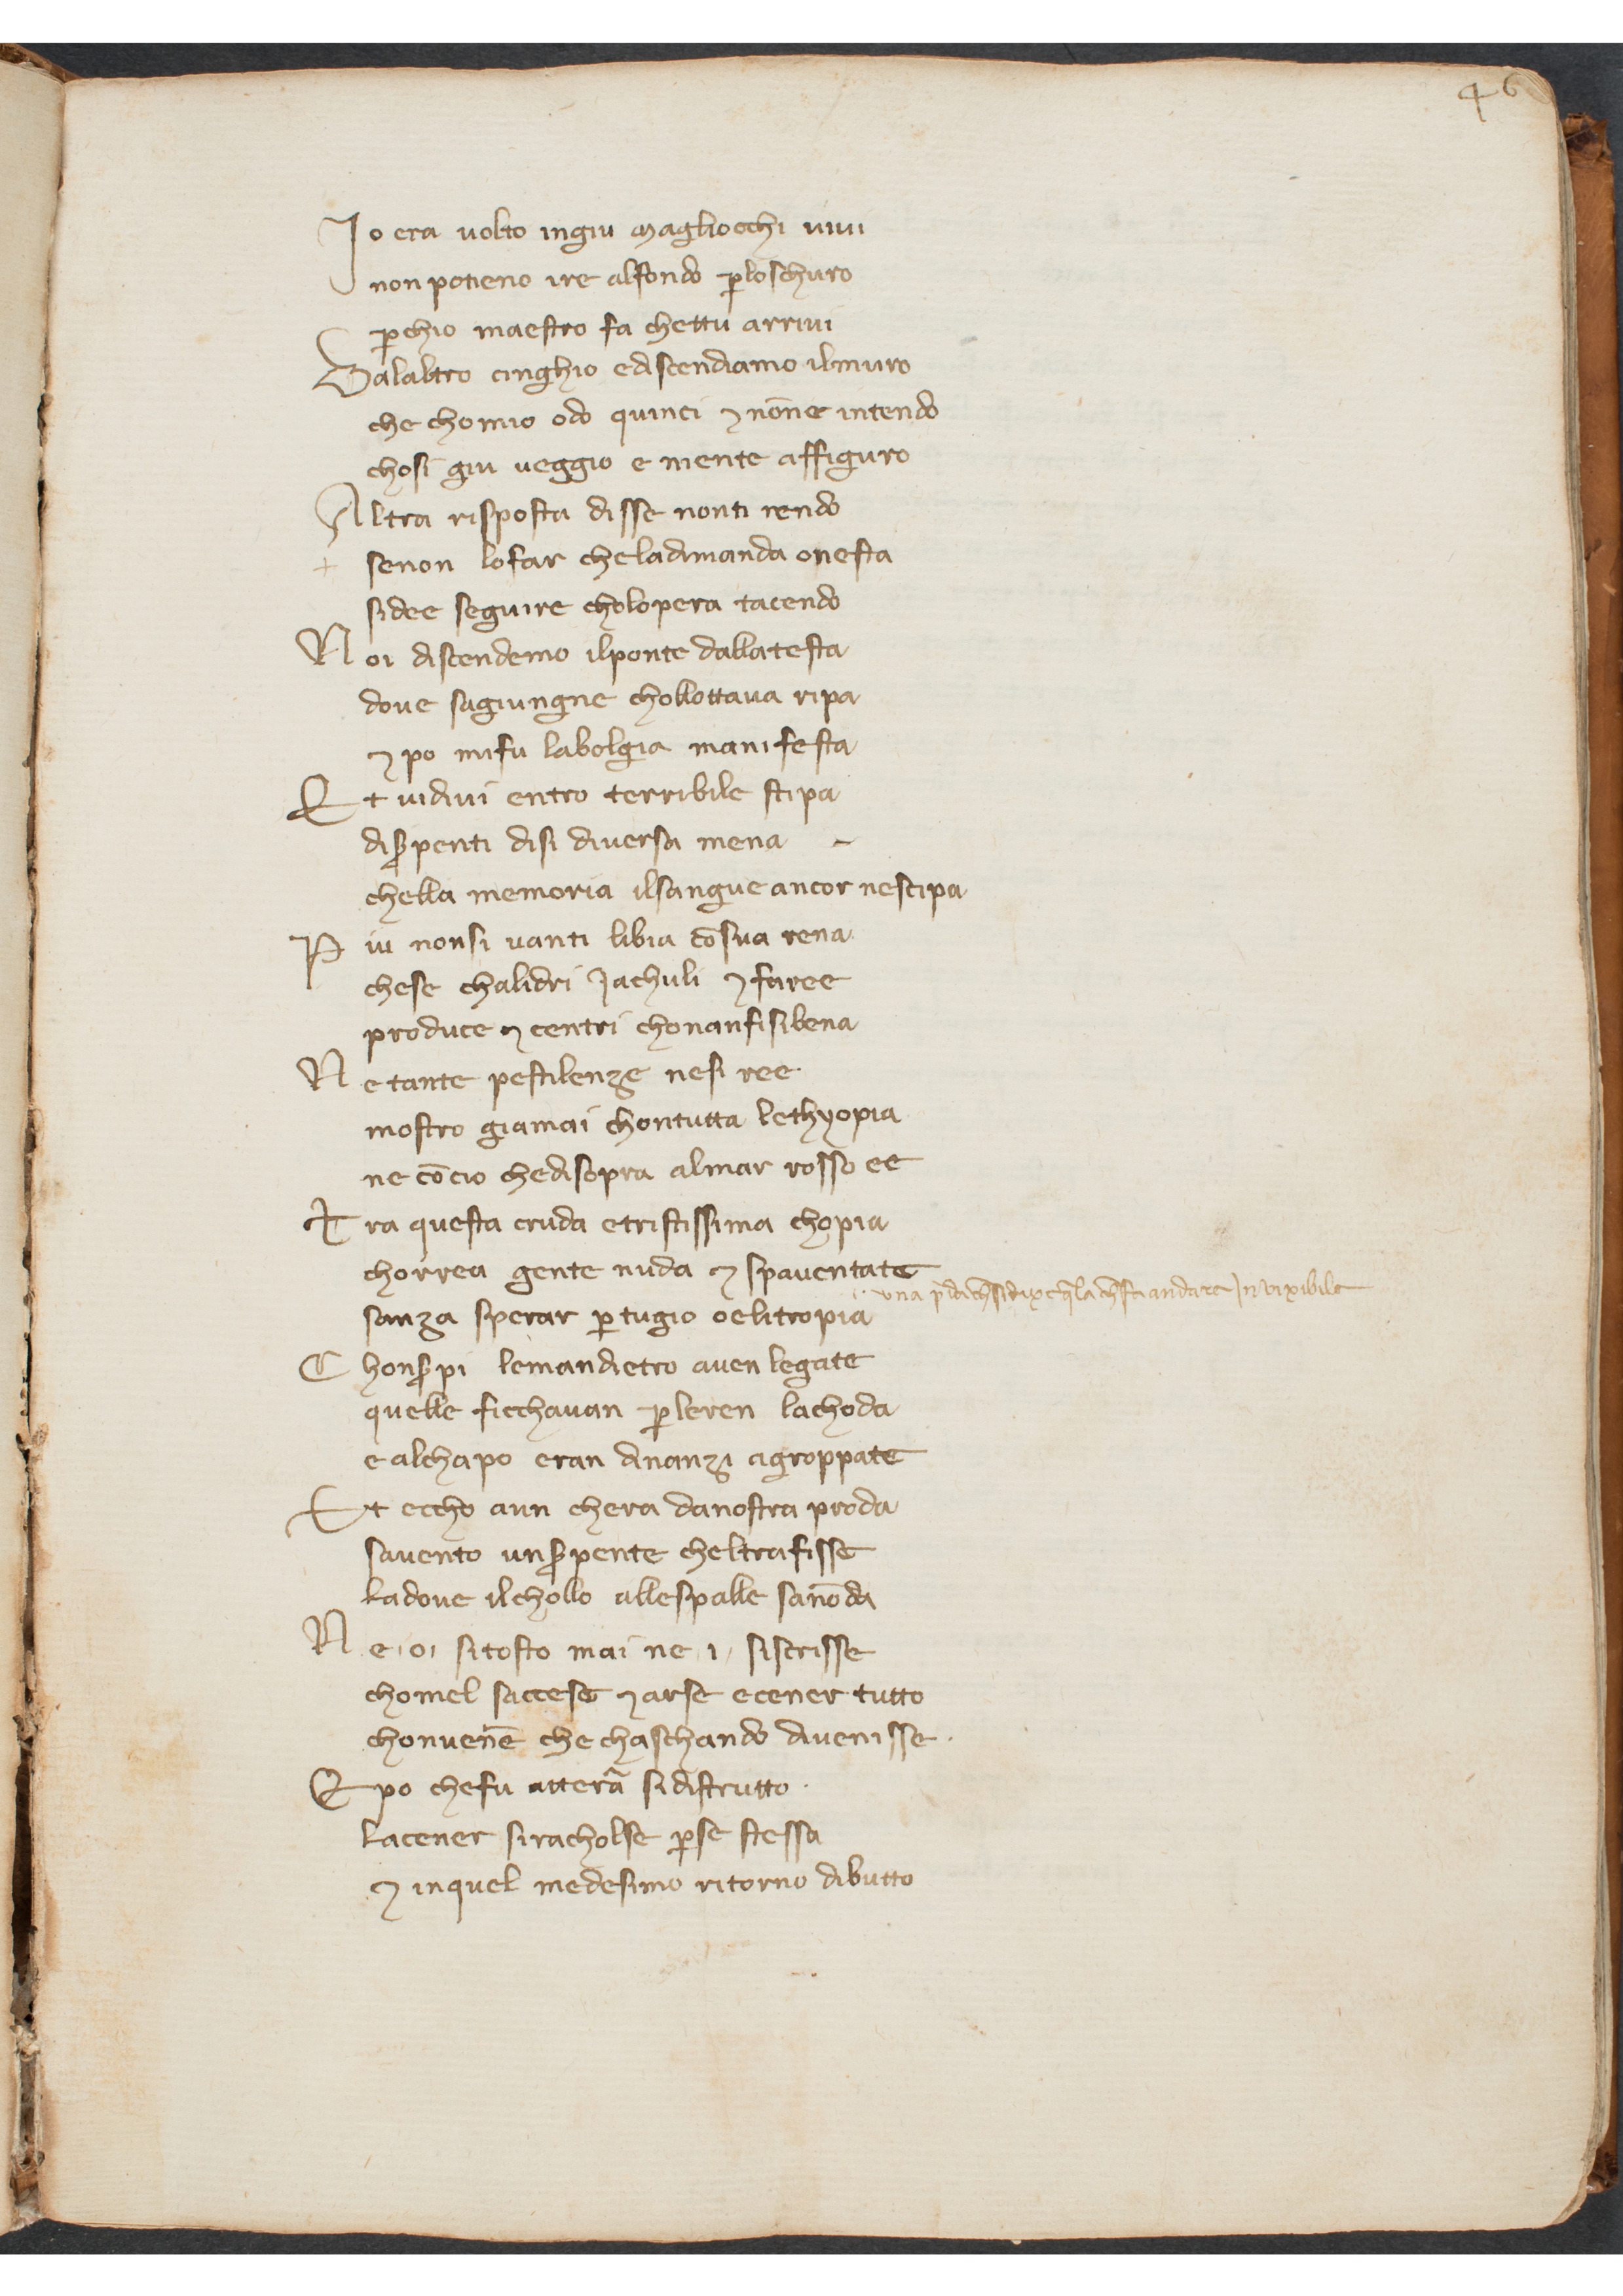 46
Io era uolto ingiu magliocchi uiui
non potieno ire alfondo ꝑloschuro
ꝑchio maestro fa chettu arriui
Dalaltro cinghio ediscendiamo ilmuro
che chomio odo quinci ⁊ nōne intendo
chosi giu ueggio e niente affiguro
Altra risposta disse nonti rendo
+ senon lofar cheladimanda onesta
sidee seguire cholopera tacendo
Noi discendemo ilponte dallatesta
doue sagiungne chollottaua ripa
⁊ po mifu labolgia manifesta
Et uidiui entro terribile stipa
disꝑpenti disi diuersa mena
chella memoria ilsangue ancor nescipa
Piu nonsi uanti libia cōsua rena
chese chalidri Jachuli ⁊ faree
produce ⁊ centri chonanfisibena
Ne tante pestilenze nesi ree
mostro giamai chontutta lethyopia
ne cōcio chedisopra almar rosso ee
Tra questa cruda etristissima chopia
chorrea gente nuda ⁊ spauentate
una p̄da ch̄sidixe q̄lla ch̄fa andare Jnuixibile
sanza sperar ꝑtugio oelitropia
Chonsꝑpi lemandietro auen legate
quelle ficchauan ꝑleren lachoda
e alchapo eran dinanzi agroppate
Et eccho aun chera danostra proda
sauento unsꝑpente cheltrafisse
Ladoue ilchollo allespalle sanōda
Ne ·o· sitosto mai ne ·i· siscrisse
chomel saccese ⁊ arse ecener tutto
chonuenē che chaschando diuenisse·
E po chefu atterā sidistrutto·
Lacener siracholse ꝑse stessa
⁊ inquel medesimo ritorno dibutto